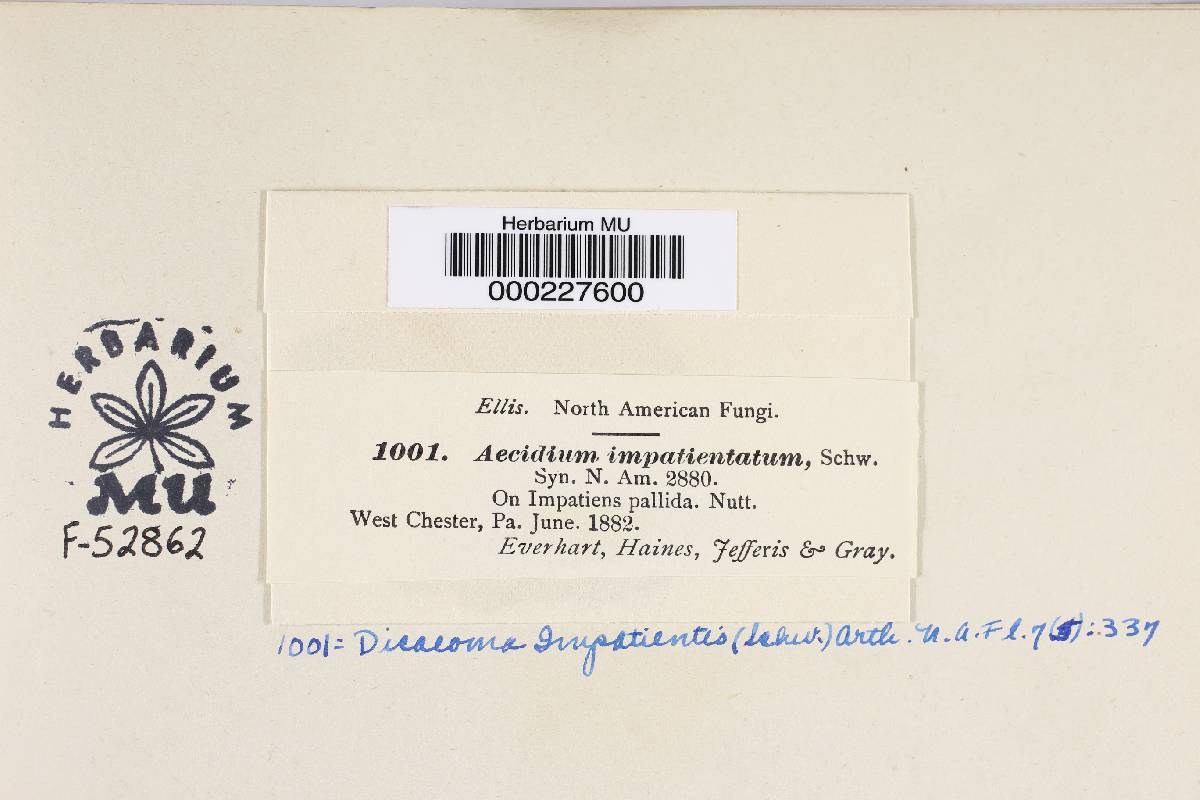 Herbarium MU
000227600
HERBARIUM
MU
F-52862
Ellis. North American Fungi.
1001. Aecidium impatientatum, Schw.
Syn. N. Am. 2880.
On Impatiens pallida. Nutt.
West Chester, Pa. June. 1882.
Everhart, Haines, Jefferis & Gray.
1001= Dicaeoma Impatientis (Schw.) Arth. N. A. Fl. 7(5): 337